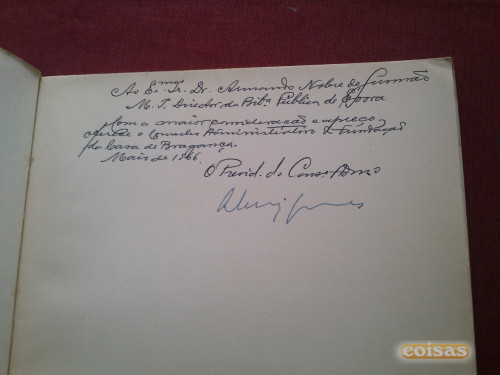 Ao Exmo. Sr. Dr. Armando Nobre de Gusmão
M. I. Director da Bibª. Pública de Évora
Com a maior consideração e apreço,
oferece o Conselho Administrativo da Fundação
da Casa de Bragança.
Maio de 1966.
O Presid. do Cons. Admo
coisas